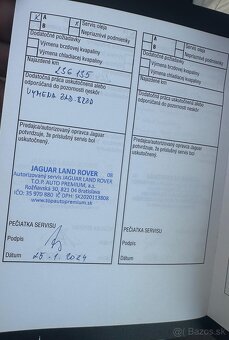 X A X Servis oleja
B Nepriaznivé podmienky
Dodatočné požiadavky
Výmena brzdovej kvapaliny
Výmena chladiacej kvapaliny
Najazdené km
236 135
Dodatočná práca uskutočnená alebo
odporúčaná do pozornosti neskôr
VÝMENA ZAD. BRZD
Predajca/autorizovaný opravca Jaguar
potvrdzuje, že príslušný servis bol
uskutočnený.
JAGUAR LAND ROVER
Autorizovaný servis JAGUAR LAND ROVER
T.O.P. AUTO PREMIUM, a.s.
Rožňavská 30, 821 04 Bratislava
IČO: 35 970 880 IČ DPH: SK2020113808
www.topautopremium.sk
PEČIATKA SERVISU
Podpis
Dátum 25. 1. 2024
A Servis oleja
B Nepriaznivé podmienky
Dodatočné požiadavky
Výmena brzdovej kvapaliny
Výmena chladiacej kvapaliny
Najazdené km
Dodatočná práca uskutočnená alebo
odporúčaná do pozornosti neskôr
Predajca/autorizovaný opravca Jaguar
potvrdzuje, že príslušný servis bol
uskutočnený.
PEČIATKA SERVISU
Podpis
Dátum
Bazos.sk